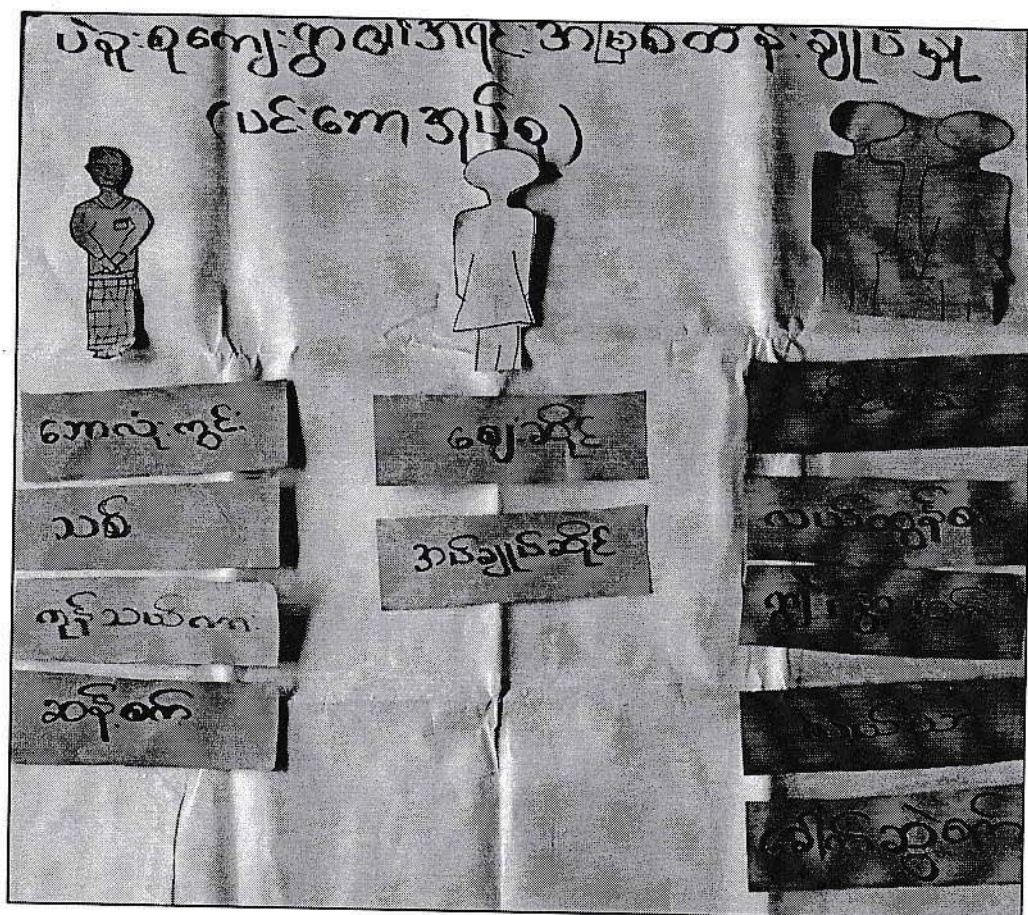 ပဲခူးစုကျေးရွာ၏အရင်းအမြစ်ထိန်းချုပ်မှု
(ပင်းတောအုပ်စု)
ဘောလုံးကွင်း
သစ်
ကုန်သယ်ကား
ဆန်စက်
ဈေးဆိုင်
အပ်ချုပ်ဆိုင်
လယ်ထွန်စက်
ခေါက်ဆွဲစက်